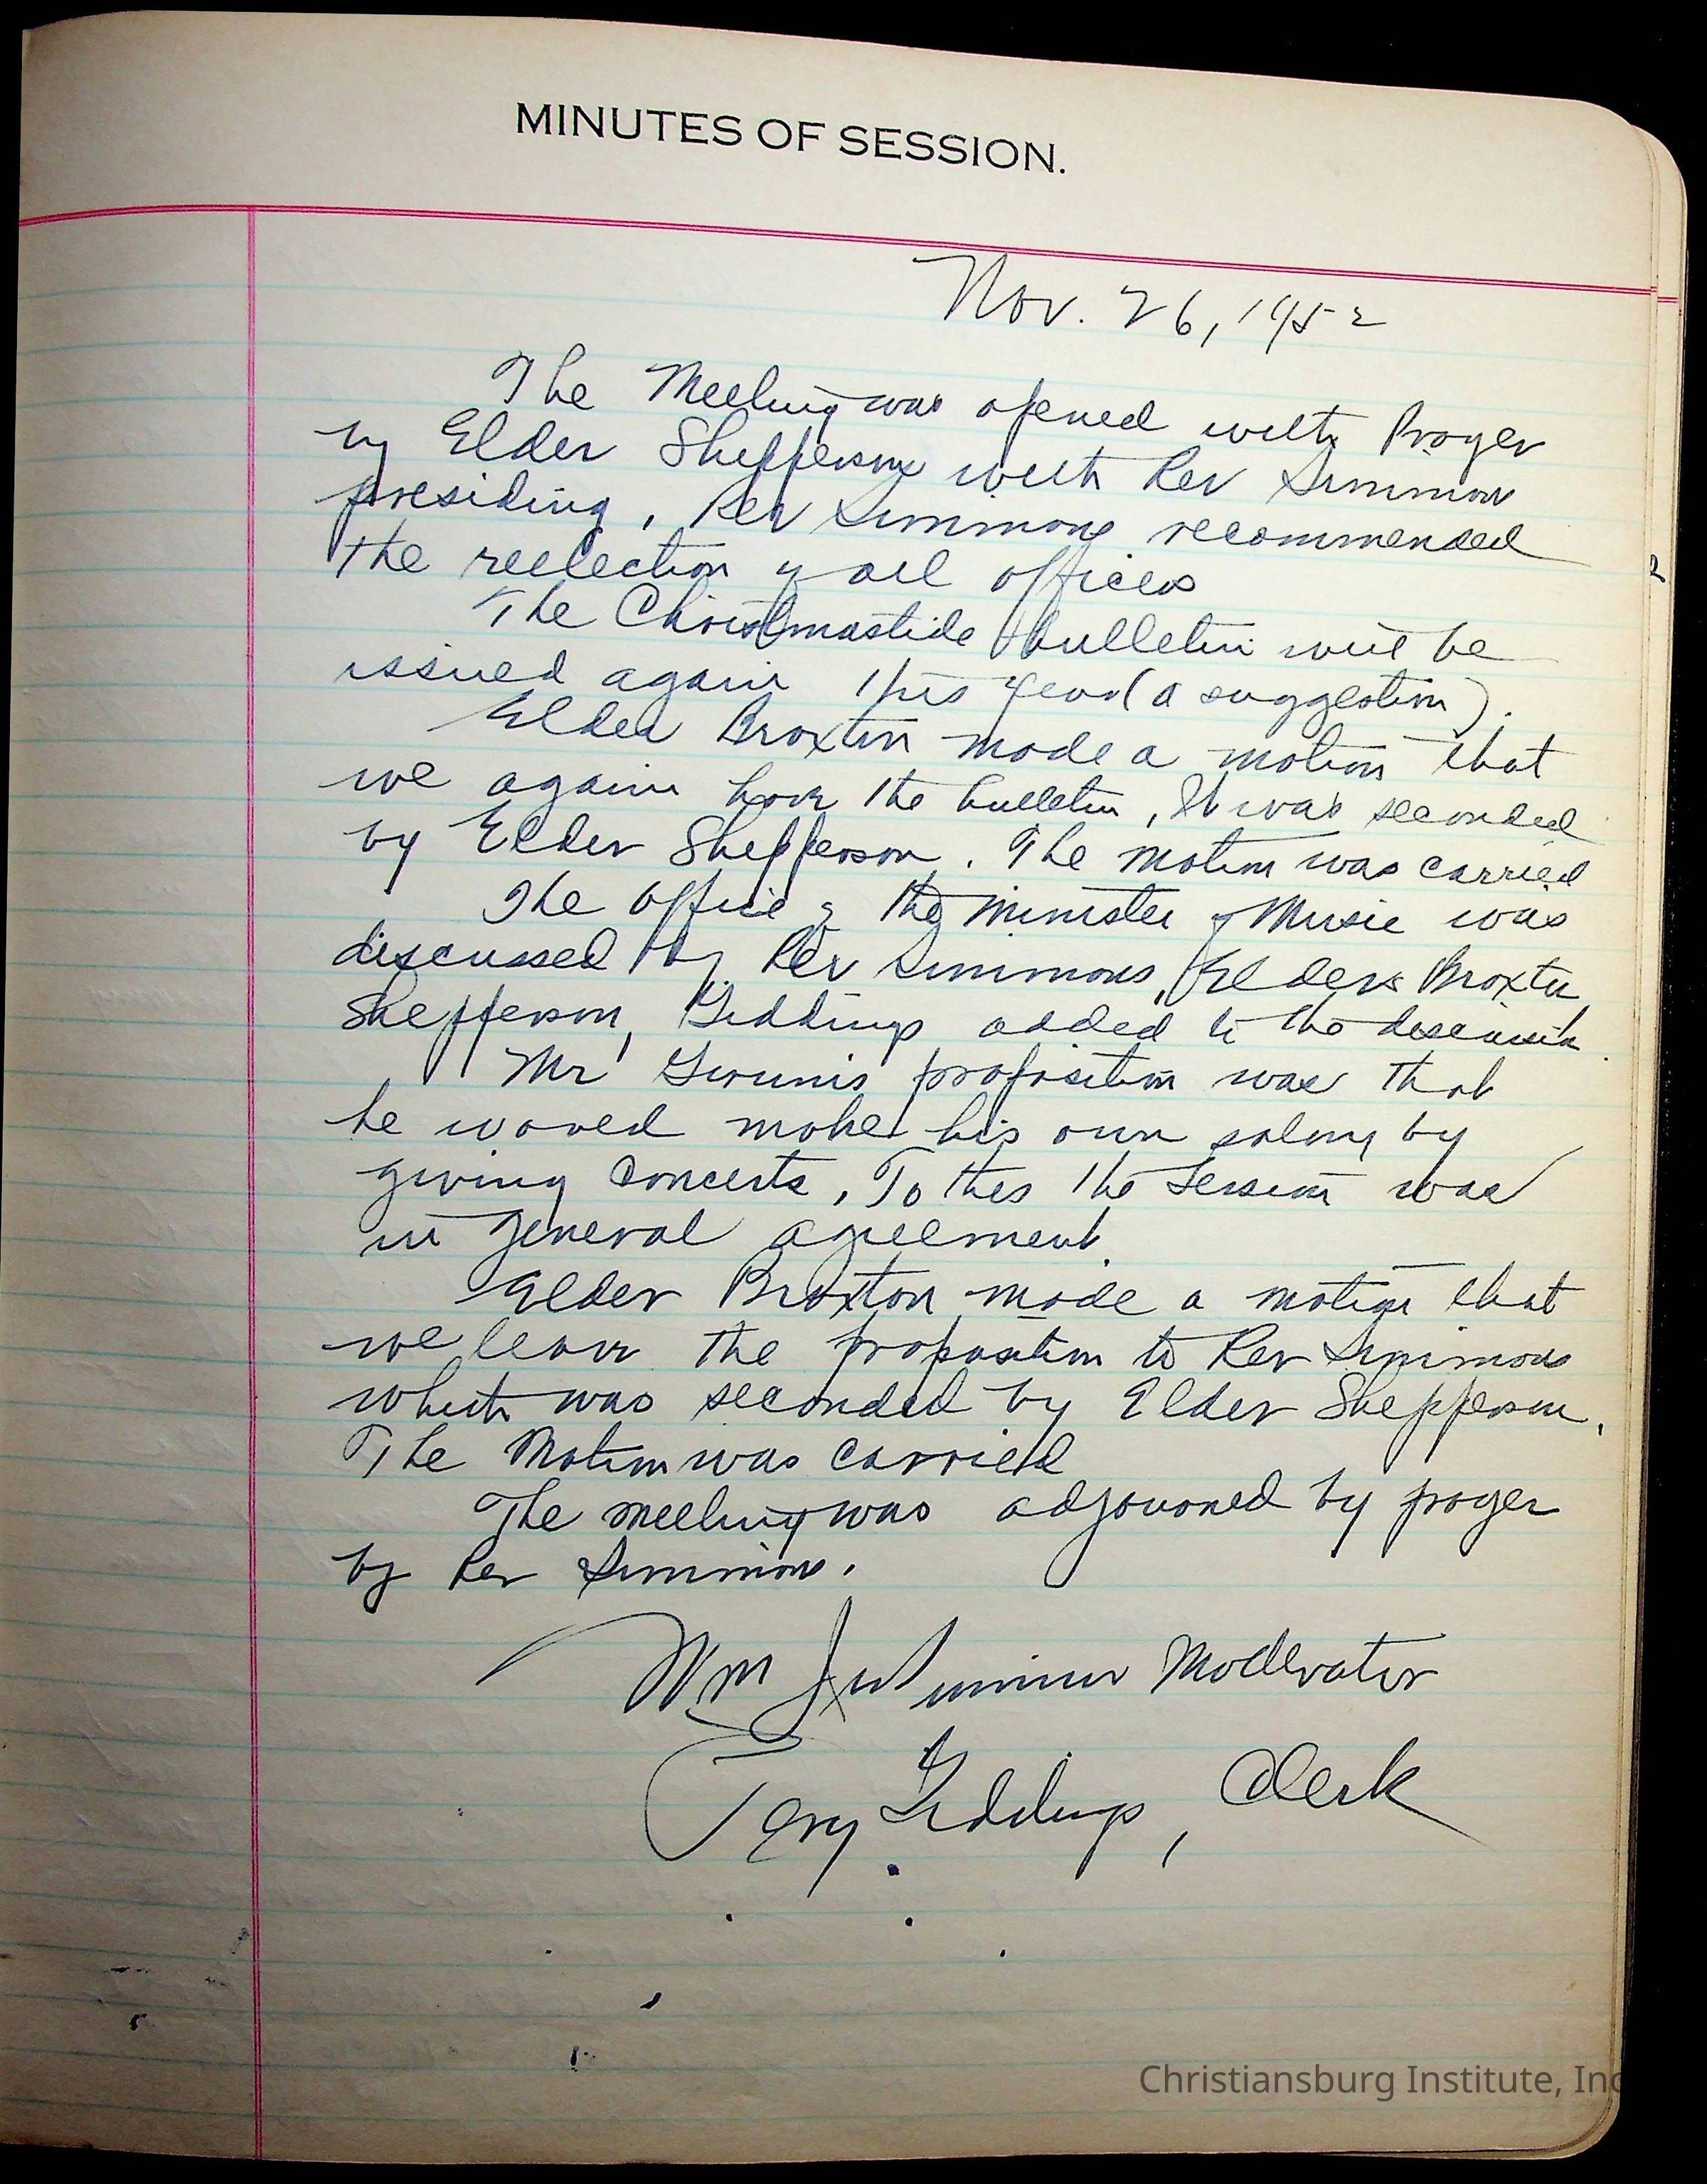 MINUTES OF SESSION.
Nov. 26, 1952
The Meeting was opened with Prayer
by Elder Shepperson with Rev Simmons
presiding, Rev Simmons recommended
the reelection of all offices
The Christmastide bulletin will be
issued again this year (a suggestion).
Elder Broxton made a motion that
we again have the bulletin, It was seconded
by Elder Shepperson. The motion was carried
The office of the minister of Music was
discussed by Rev Simmons, Elders Broxton
Shepperson, Giddings added to the discussion.
Mr proposition was that
he would make his own salary by
giving Concerts, To this the Session was
in general agreement.
Elder Broxton made a motion that
we leave the proposition to Rev Simmons
which was seconded by Elder Shepperson.
The Motion was carried
The meeting was adjourned by prayer
by Rev Simmons.
Wm Simmons Moderator
Giddings, Clerk
Christiansburg Institute, Inc